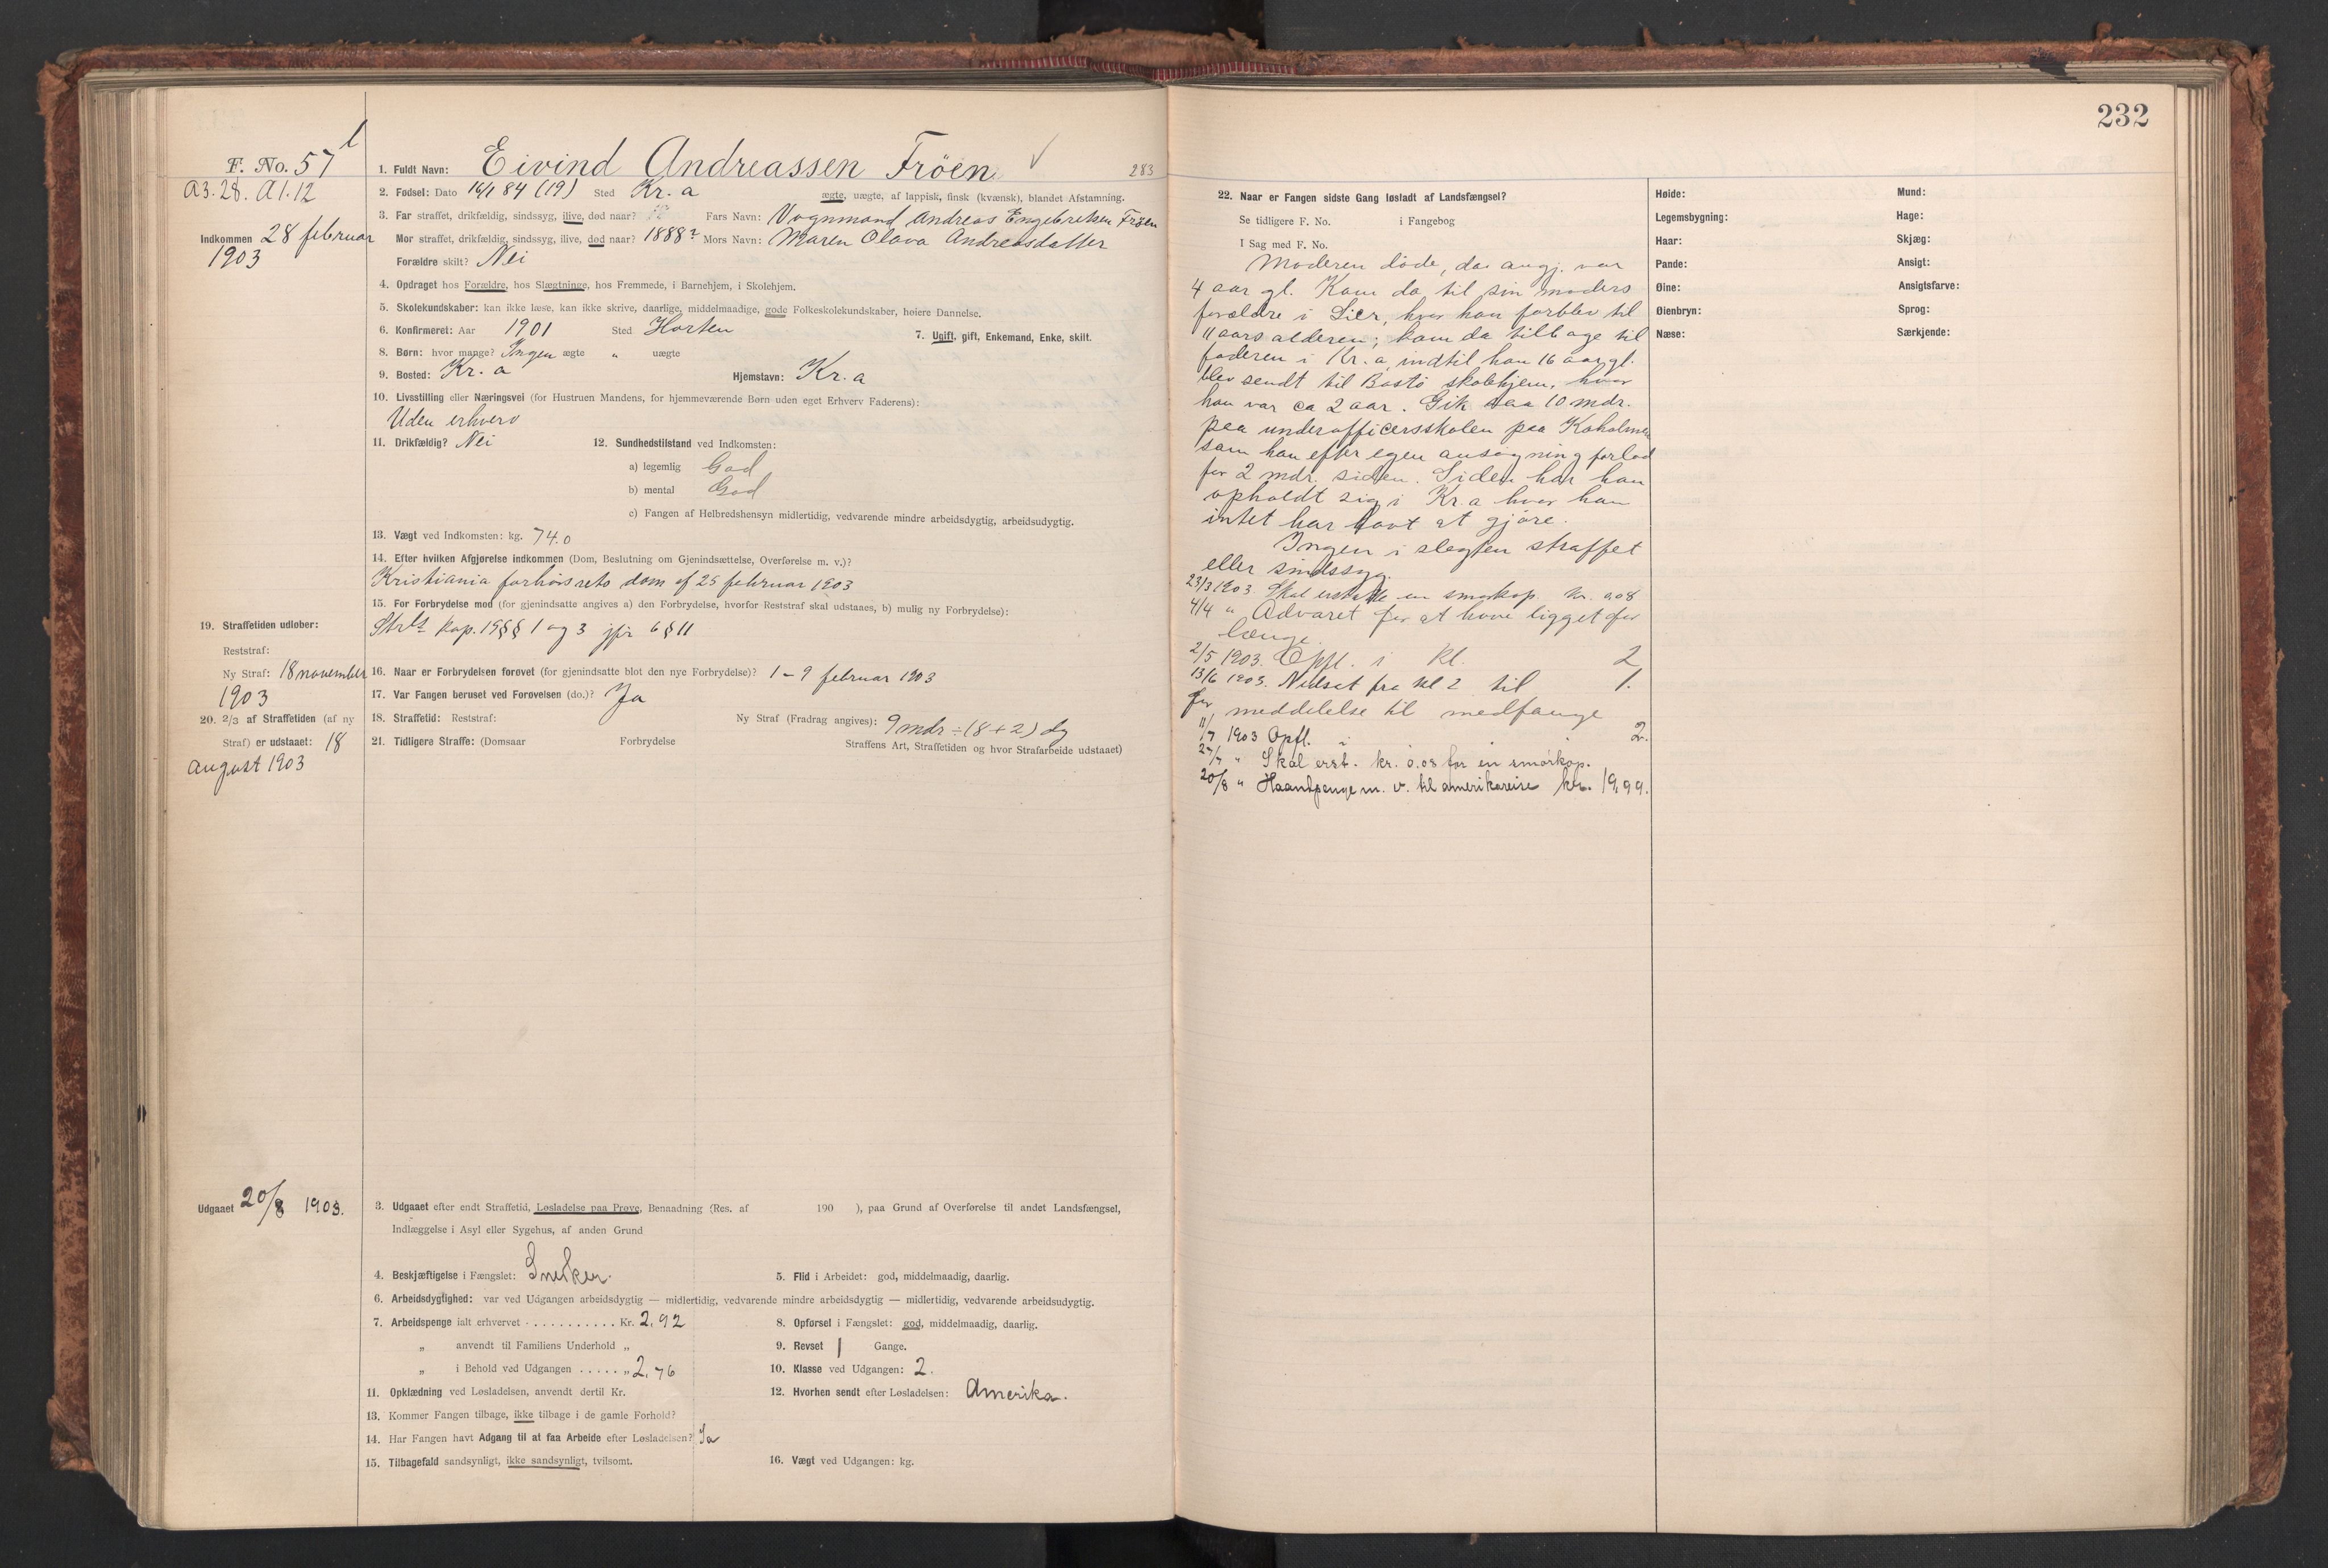 F. No. 57
A3.28. A1.12
Indkommen 28 februar
1903
1. Fuldt Navn: Eivind Andreassen Fröen
283
2. Fødsel: Dato 16/1 84 (19) Sted Kr. a ægte, uægte, af lappisk, finsk (kvænsk), blandet Afstamning.
3. Far straffet, drikfældig, sindssyg, ilive, død naar? Fars Navn: Vognmand Andreas Engebretsen Fröen
Mor straffet, drikfældig, sindssyg, ilive, død naar? 1888? Mors Navn: Maren Olava Andreasdatter
Forældre skilt? Nei
4. Opdraget hos Forældre, hos Slægtninge, hos Fremmede, i Barnehjem, i Skolehjem.
5. Skolekundskaber: kan ikke læse, kan ikke skrive, daarlige, middelmaadige, gode Folkeskolekundskaber, høiere Dannelse.
6. Konfirmeret: Aar 1901 Sted Horten 7. Ugift, gift, Enkemand, Enke, skilt.
8. Børn: hvor mange? Ingen ægte " uægte
9. Bosted: Kr. a Hjemstavn: Kr. a
10. Livsstilling eller Næringsvei (for Hustruen Mandens, for hjemmeværende Børn uden eget Erhverv Faderens):
Uden erhverv
11. Drikfældig? Nei 12. Sundhedstilstand ved Indkomsten:
a) legemlig God
b) mental God
c) Fangen af Helbredshensyn midlertidig, vedvarende mindre arbeidsdygtig, arbeidsudygtig.
13. Vægt ved Indkomsten: kg. 74.0
14. Efter hvilken Afgjørelse indkommen (Dom, Beslutning om Gjenindsættelse, Overførelse m. v.)?
Kristiania forhörsrets dom af 25 februar 1903
15. For Forbrydelse mod (for gjenindsatte angives a) den Forbrydelse, hvorfor Reststraf skal udstaaes, b) mulig ny Forbrydelse):
Strls kap. 19 §§ 1 og 3 jfr 6 § 11
19. Straffetiden udløber:
Reststraf:
Ny Straf: 18 november
1903
16. Naar er Forbrydelsen forøvet (for gjenindsatte blot den nye Forbrydelse)? 1 - 9 februar 1903
17. Var Fangen beruset ved Forøvelsen (do.)? Ja
20. 2/3 af Straffetiden (af ny
Straf) er udstaaet: 18
august 1903
18. Straffetid: Reststraf: Ny Straf (Fradrag angives): 9 mdr ÷ (8+2) dg
21. Tidligere Straffe: (Domsaar Forbrydelse Straffens Art, Straffetiden og hvor Strafarbeide udstaaet)
Udgaaet 20/8 1903.
3. Udgaaet efter endt Straffetid, Løsladelse paa Prøve, Benaadning (Res. af 190 ), paa Grund af Overførelse til andet Landsfængsel,
Indlæggelse i Asyl eller Sygehus, af anden Grund
4. Beskjæftigelse i Fængslet: Snekker. 5. Flid i Arbeidet: god, middelmaadig, daarlig.
6. Arbeidsdygtighed: var ved Udgangen arbeidsdygtig — midlertidig, vedvarende mindre arbeidsdygtig — midlertidig, vedvarende arbeidsudygtig.
7. Arbeidspenge ialt erhvervet . . . . . . . . . . . Kr. 2,92 8. Opførsel i Fængslet: god, middelmaadig, daarlig.
„ anvendt til Familiens Underhold „ 9. Revset 1 Gange.
„ i Behold ved Udgangen . . . . . „ 2,76 10. Klasse ved Udgangen: 2.
11. Opklædning ved Løsladelsen, anvendt dertil Kr. 12. Hvorhen sendt efter Løsladelsen: Amerika.
13. Kommer Fangen tilbage, ikke tilbage i de gamle Forhold?
14. Har Fangen havt Adgang til at faa Arbeide efter Løsladelsen? Ja
15. Tilbagefald sandsynligt, ikke sandsynligt, tvilsomt. 16. Vægt ved Udgangen: kg.
232
22. Naar er Fangen sidste Gang løsladt af Landsfængsel?
Se tidligere F. No. i Fangebog
I Sag med F. No.
Moderen döde, da angj. var
4 aar gl. Kom da til sin moders
forældre i Lier, hvor han forblev til
11 aars alderen; kom da tilbage til
faderen i Kr. a, indtil han 16 aar gl.
blev sendt til Bastö skolehjem, hvor
han var ca 2 aar. Gik saa 10 mdr.
paa underofficersskolen paa Kaholmen
som han efter egen ansögning forlod
for 2 mdr. siden. Siden har han
opholdt sig i Kr. a hvor han
intet har havt at gjöre.
Ingen i slegten straffet
eller sindssyg.
23/3 1903. Skal erstatte en smørkop. Kr. 0,08
4/4 " Advaret for at have ligget for
længe.
2/5 1903. Opfl. i kl. 2
13/6 1903. Nedsat fra kl 2 til 1.
for meddelelse til medfange
11/7 1903 Opfl. i " 2.
27/7 " Skal erst. kr. 0.08 for en smörkop.
20/8 " Haandpenge m. v. til amerikareise kr. 19,99.
Høide: Mund:
Legemsbygning: Hage:
Haar: Skjæg:
Pande: Ansigt:
Øine: Ansigtsfarve:
Øienbryn: Sprog:
Næse: Særkjende: